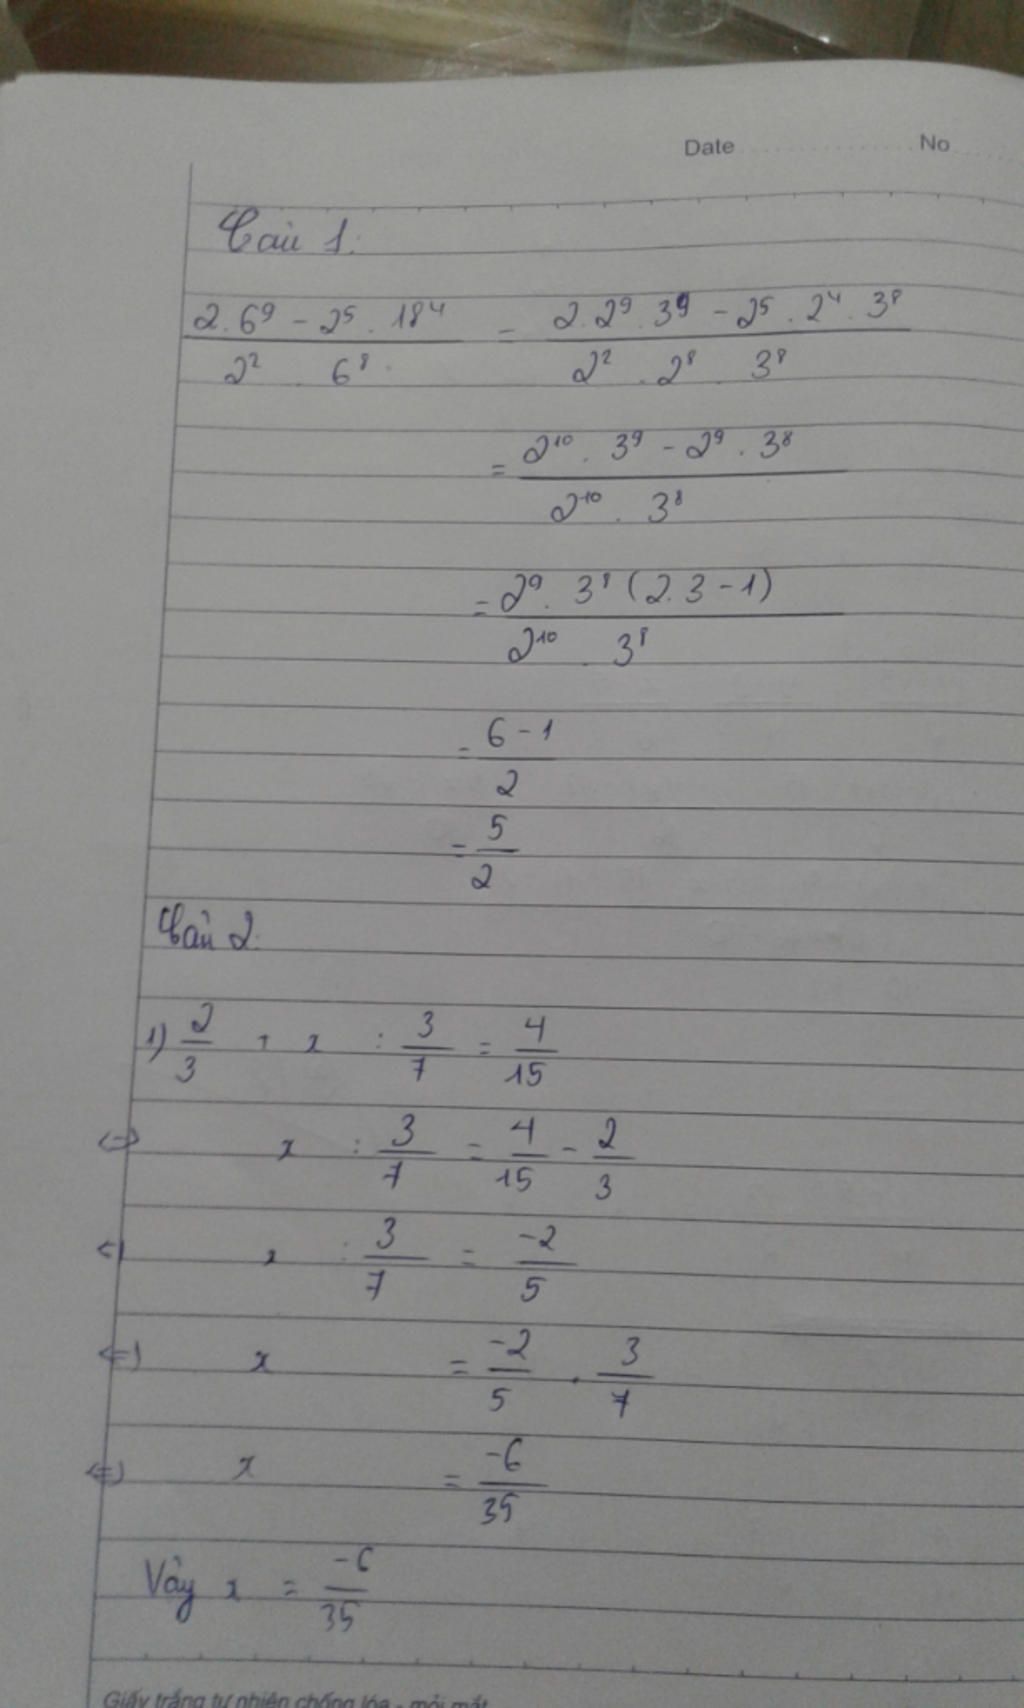 Date No
Câu 1:
\frac{2.6^9 - 2^5 . 18^4}{2^2 . 6^8} = \frac{2.2^9 . 3^9 - 2^5 . 2^4 . 3^8}{2^2 . 2^8 . 3^8}
= \frac{2^{10} . 3^9 - 2^9 . 3^8}{2^{10} . 3^8}
= \frac{2^9 . 3^8 (2.3 - 1)}{2^{10} . 3^8}
= \frac{6 - 1}{2}
= \frac{5}{2}
Câu 2:
1) \frac{2}{3} + x : \frac{3}{7} = \frac{4}{15}
<=> x : \frac{3}{7} = \frac{4}{15} - \frac{2}{3}
<=> x : \frac{3}{7} = \frac{-2}{5}
<=> x = \frac{-2}{5} . \frac{3}{7}
<=> x = \frac{-6}{35}
Vậy x = \frac{-6}{35}
Giấy trắng tự nhiên chống lóa - mỏi mắt